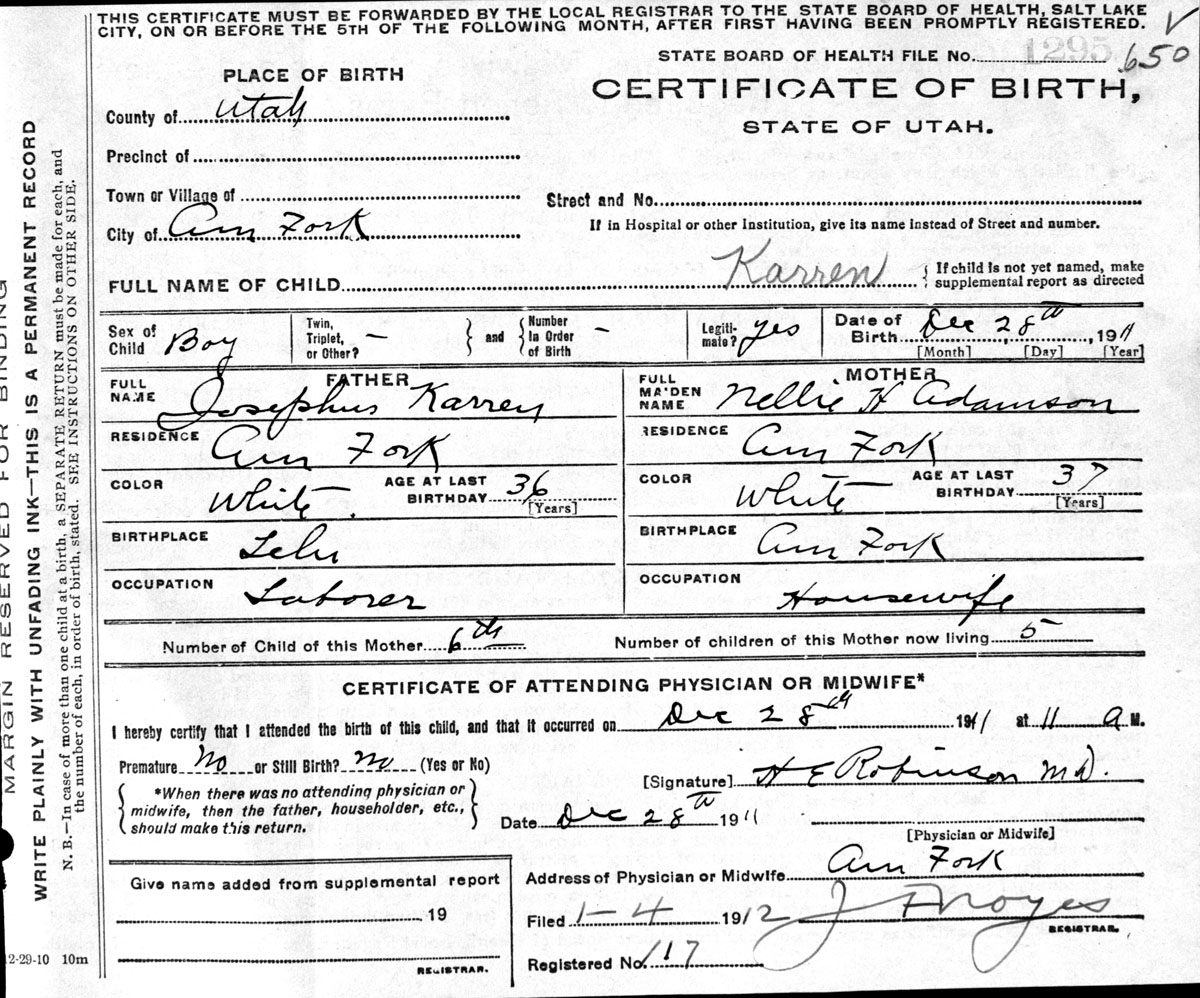 THIS CERTIFICATE MUST BE FORWARDED BY THE LOCAL REGISTRAR TO THE STATE BOARD OF HEALTH, SALT LAKE
CITY, ON OR BEFORE THE 5TH OF THE FOLLOWING MONTH, AFTER FIRST HAVING BEEN PROMPTLY REGISTERED.
STATE BOARD OF HEALTH FILE No. 1295 650
PLACE OF BIRTH
CERTIFICATE OF BIRTH,
STATE OF UTAH.
County of Utah
Precinct of
Town or Village of
Street and No.
City of Am Fork
If in Hospital or other Institution, give its name instead of Street and number.
FULL NAME OF CHILD Karren { If child is not yet named, make
supplemental report as directed
Sex of
Child Boy
Twin,
Triplet,
or Other? —
} and {
Number
In Order
of Birth —
Legiti-
mate? yes
Date of
Birth Dec 28th, 1911
[Month] [Day] [Year]
FATHER
FULL
NAME Josephus Karren
RESIDENCE Am Fork
COLOR White AGE AT LAST
BIRTHDAY 36
[Years]
BIRTHPLACE Lehi
OCCUPATION Laborer
MOTHER
FULL
MAIDEN
NAME Nellie H Adamson
RESIDENCE Am Fork
COLOR White AGE AT LAST
BIRTHDAY 37
[Years]
BIRTHPLACE Am Fork
OCCUPATION Housewife
Number of Child of this Mother 6th Number of children of this Mother now living 5
CERTIFICATE OF ATTENDING PHYSICIAN OR MIDWIFE*
I hereby certify that I attended the birth of this child, and that it occurred on Dec 28th 1911 at 11 A.M.
Premature No or Still Birth? No (Yes or No)
[Signature] H E Robinson M.D.
{ *When there was no attending physician or
midwife, then the father, householder, etc.,
should make this return. }
Date Dec 28th 1911
[Physician or Midwife]
Address of Physician or Midwife Am Fork
Filed 1-4 1912 J F Noyes
REGISTRAR.
Registered No. 117
Give name added from supplemental report
19
REGISTRAR.
MARGIN RESERVED FOR BINDING
WRITE PLAINLY WITH UNFADING INK—THIS IS A PERMANENT RECORD
N. B.—In case of more than one child at a birth, a SEPARATE RETURN must be made for each, and
the number of each, in order of birth, stated. SEE INSTRUCTIONS ON OTHER SIDE.
12-29-10 10m